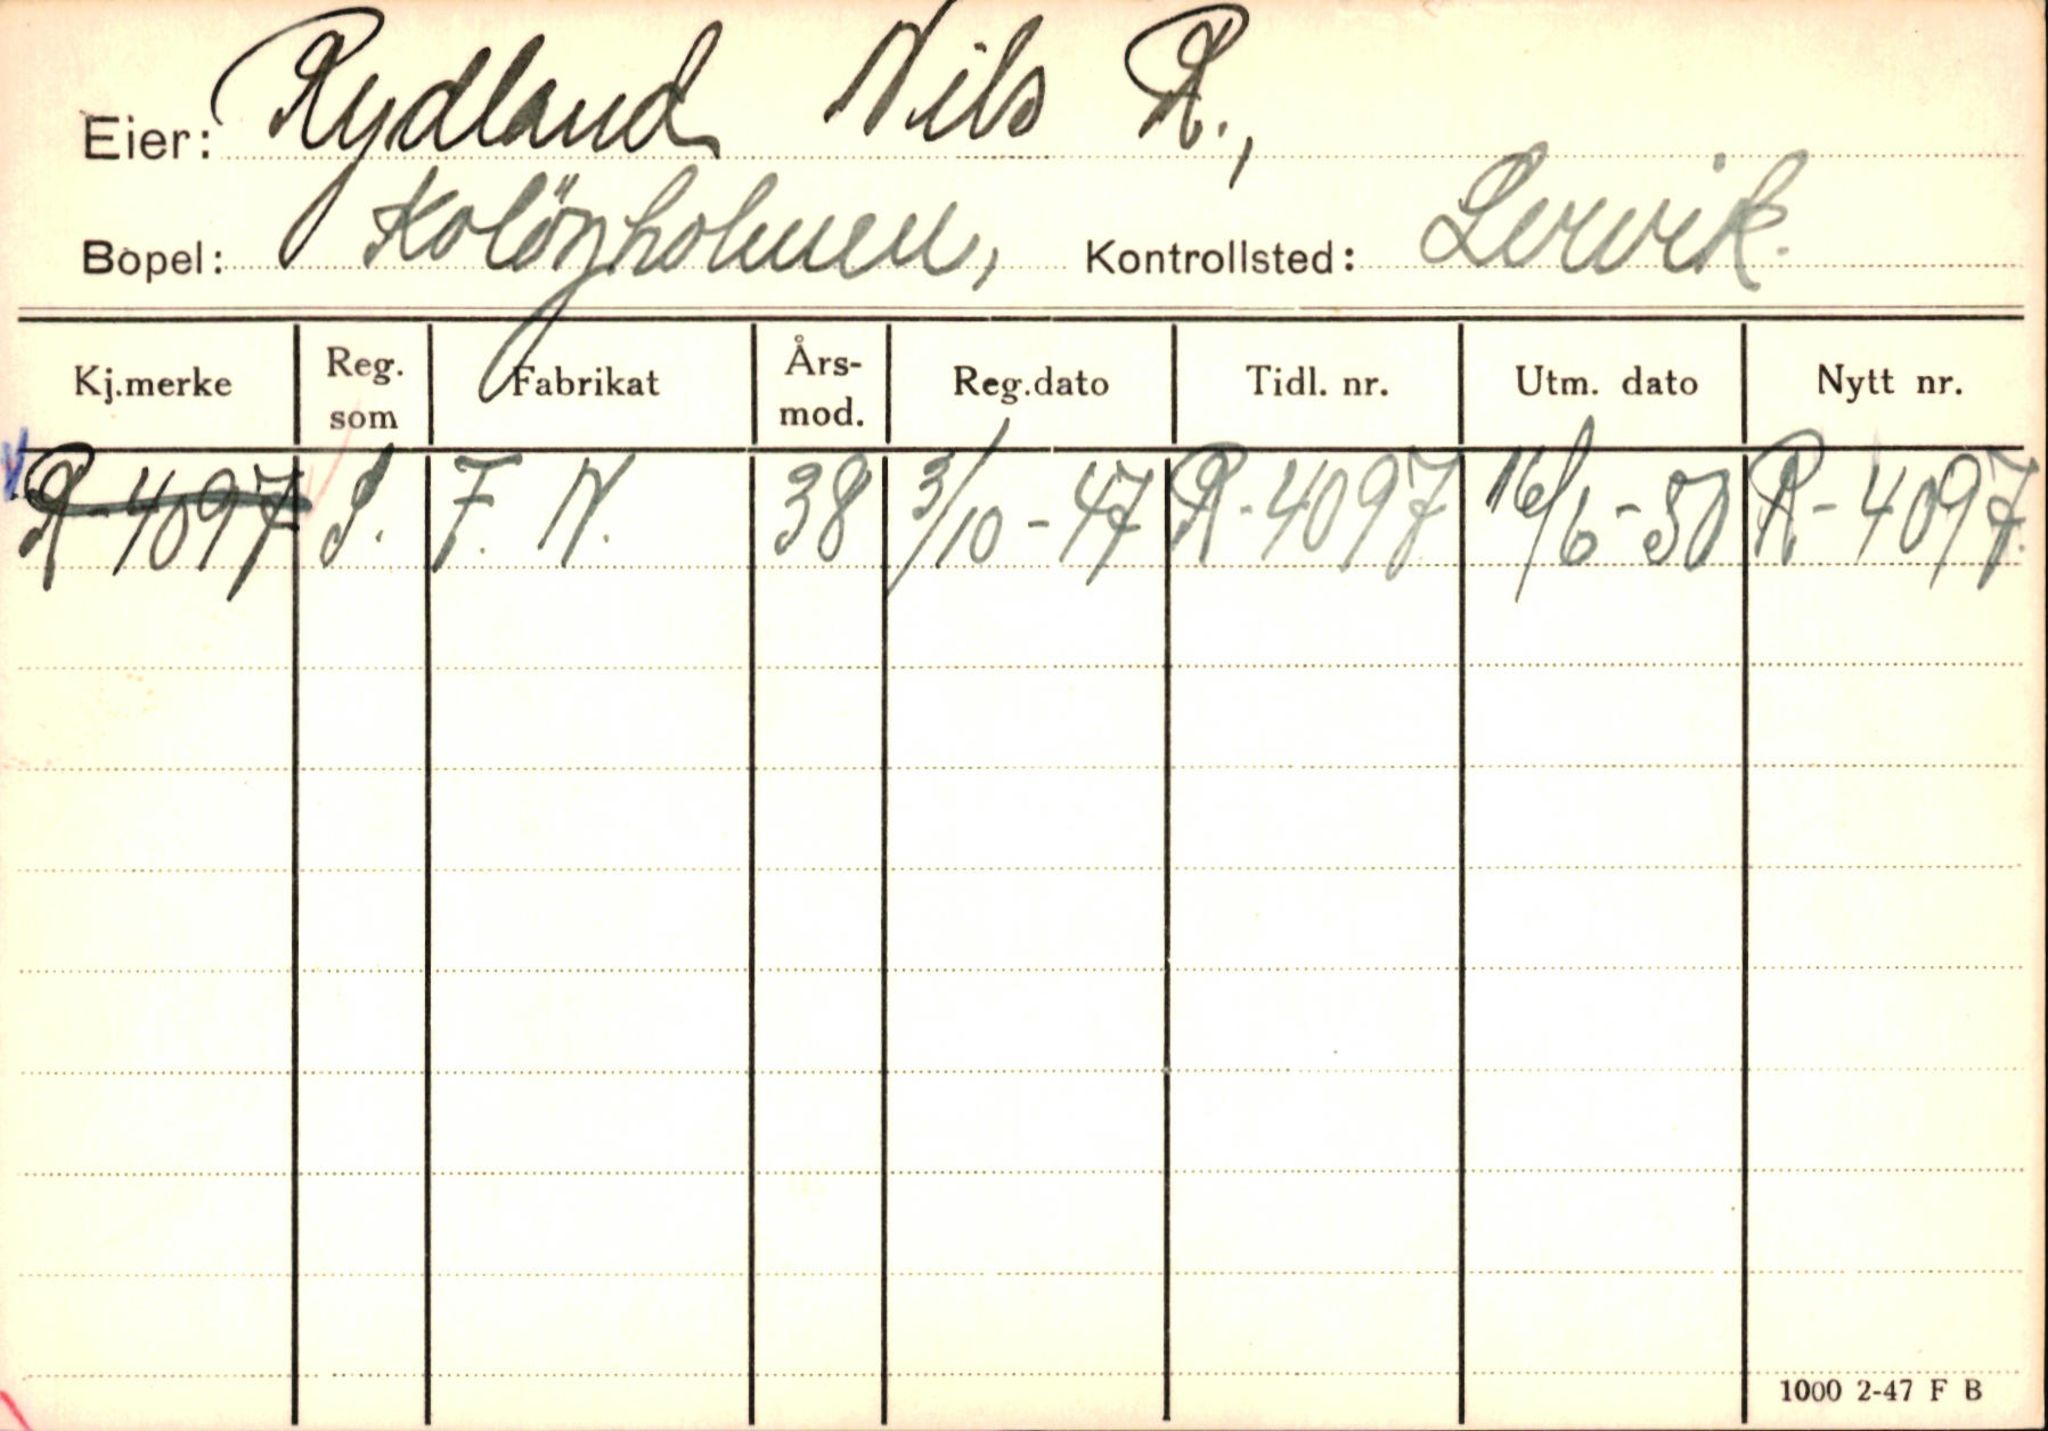 Eier: Rydland Nils R.,
Bopel: Koløyholmen, Kontrollsted: Lervik.
Kj.merke Reg. som Fabrikat Års-mod. Reg.dato Tidl. nr. Utm. dato Nytt nr.
R-4097 P. F. N. 38 3/10-47 R-4097 16/6-50 R-4097.
1000 2-47 F B